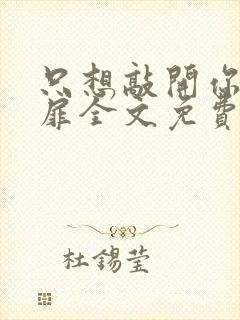 只想敲開你
扉全文免費
杜錫瑩